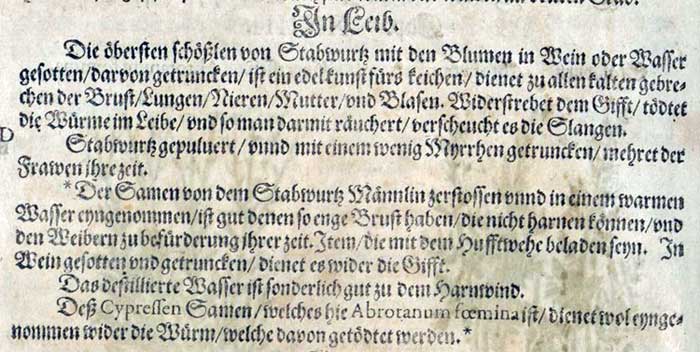 In Leib.
Die öbersten schößlen von Stabwurtz mit den Blumen in Wein oder Wasser
gesotten/darvon getruncken/ ist ein edel kunst fürs keichen/ dienet zu allen kalten gebre-
chen der Brust/Lungen/Nieren/Mutter/vnd Blasen. Widerstrebet dem Gifft/ tödtet
die Würme im Leibe/ vnd so man darmit räuchert/ verscheucht es die Slangen.
D
Stabwurtz gepuluert/ vnnd mit einem wenig Myrrhen getruncken/ mehret der
Frawen jhre zeit.
*Der Samen von dem Stabwurtz Männlin zerstossen vnnd in einem warmen
Wasser eyngenommen/ist gut denen so enge Brust haben/die nicht harnen können/vnd
den Weibern zu befürderung jhrer zeit. Item/die mit dem Hufftwehe beladen seyn. In
Wein gesotten vnd getruncken/ dienet es wider die Gifft.
Das destillierte Wasser ist sonderlich gut zu dem Harnwind.
Deß Cypressen Samen/welches hie Abrotanum fœmina ist/ dienet wol eynge-
nommen wider die Würm/welche davon getödtet werden.*